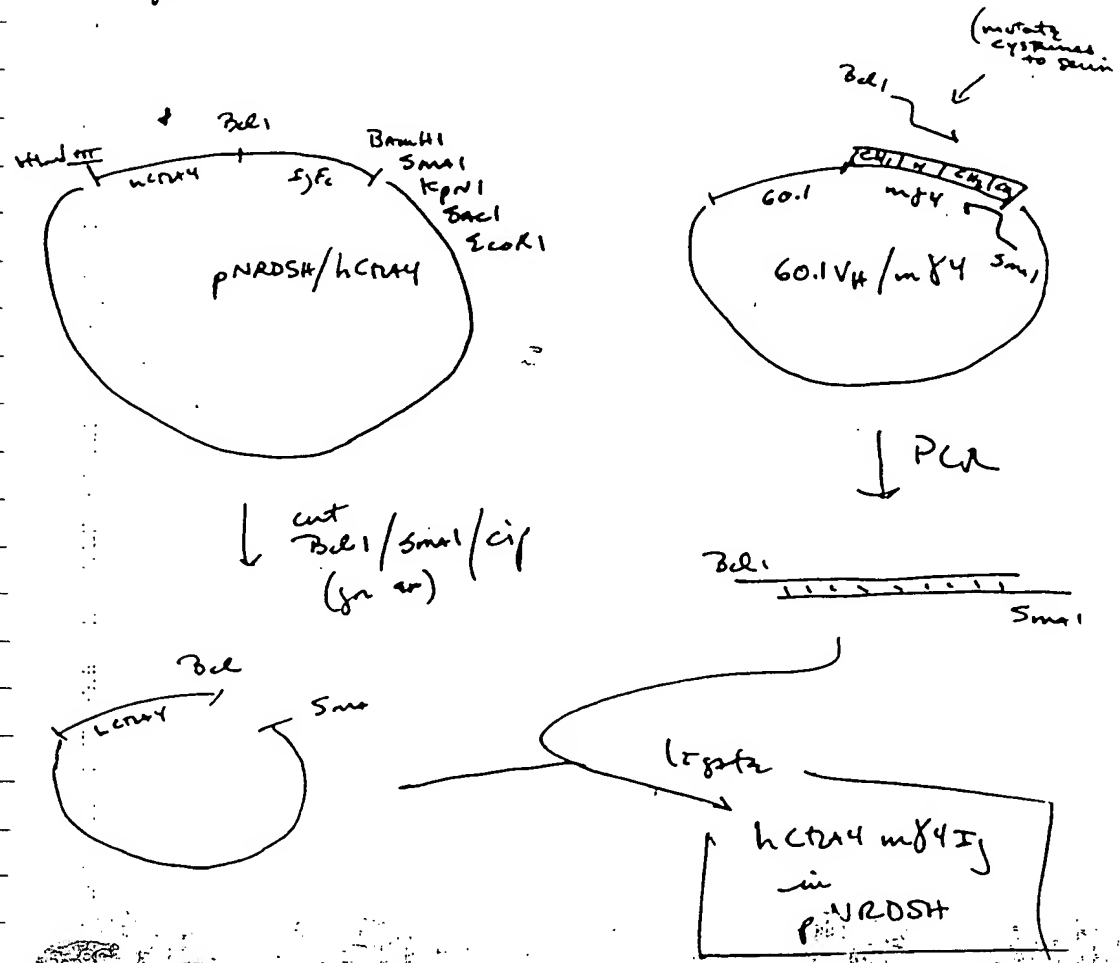 (mutate
cysteines
to serin
Bcl1
Bcl1
HindIII
hCTLA4
IgFc
BamH1
Sma1
Kpn1
Sac1
EcoR1
pNRDSH/hCTLA4
60.1
CH1 H CH2 C3
mγ4
Sma1
60.1VH/mγ4
PCR
cut
Bcl1/Sma1/cip
Bcl1
Sma1
Bcl
hCTLA4
Sma
ligate
hCTLA4 mγ4Ig
in
pNRDSH